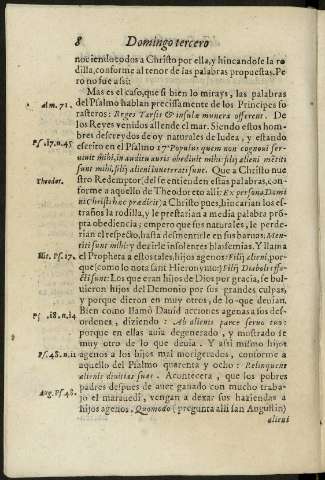 8 Domingo tercero
nociendo todos a Christo por ella, y hincandose la ro
dilla, conforme al tenor de las palabras propuestas. Pe
ro no fue assi:
Mas es el caso, que si bien lo mirays, las palabras
Psalm. 71. del Psalmo hablan precissamente de los Principes fo
rasteros: Reges Tarsis & insulæ munera offerent. De
los Reyes venidos allende el mar. Siendo estos hom
bres descreydos de oy naturales de Iudea, y estando
Ps. 17. n. 45 escrito en el Psalmo 17 Populus quem non cognoui ser-
uiuit mihi, in auditu auris obediuit mihi filij alieni mētiti
sunt mihi, filij alieni inueterati sunt. Que a Christo nue
Theodor. stro Redemptor, del se entienden estas palabras, con-
forme a aquello de Theodoreto alli: Ex persona Domi
ni Christi hæc prædicit; a Christo pues, hincarian los es-
traños la rodilla, y le prestarian a media palabra prōp-
ta obediencia; empero que sus naturales, le perde-
rian el respecto, hasta desmentirle en sus barbas: Men-
titi sunt mihi: y dezirle insolentes blasfemias. Y llama
Hit. Ps. 17. el Propheta a estos tales, hijos agenos: Filij alieni, por-
que (como lo nota sant Hieronymo) Filij Diaboli effe-
cti sunt: Los que eran hijos de Dios por gracia, se bol-
uieron hijos del Demonio por sus grandes culpas,
y porque dieron en muy otros, de lo que deuian.
Ps. 18. n. 14 Bien como llamò Dauid acciones agenas a sus des-
ordenes, diziendo: Ab alienis parce seruo tuo:
porque en ellas auia degenerado, y mostrado se
muy otro de lo que deuia. Y assi mismo hijos
Ps. 48. n. 11 agenos a los hijos mal morigerados, conforme a
aquello del Psalmo quarenta y ocho: Relinquent
alienis diuitias suas. Acontecera, que los pobres
padres despues de auer ganado con mucho traba-
Aug. Ps. 48. jo el marauedi, vengan a dexar sus haziendas a
hijos agenos. Quomodo (pregunta alli san Augustin)
alieni